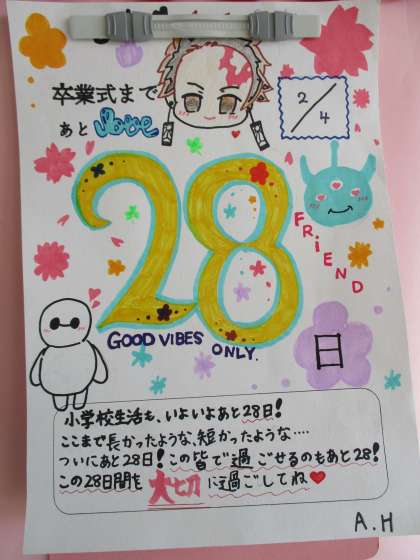 卒業式まで
2/4
あと
28
FRiEND
GOOD VIBES ONLY.
日
小学校生活も、いよいよあと28日!
ここまで長かったような、短かったような....
ついにあと28日!この皆で過ごせるのもあと28!
この28日間を大切に過ごしてね
A.H